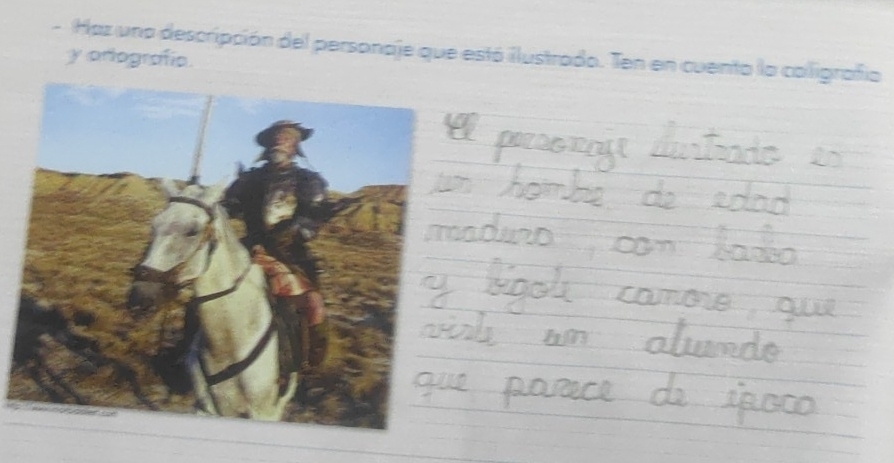 - Haz una descripción del personaje que está ilustrado. Ten en cuenta la caligrafía
y ortografía.
El personaje ilustrado es
un hombre de edad
maduro, con barba
y bigote canoso, que
viste un atuendo
que parece de época